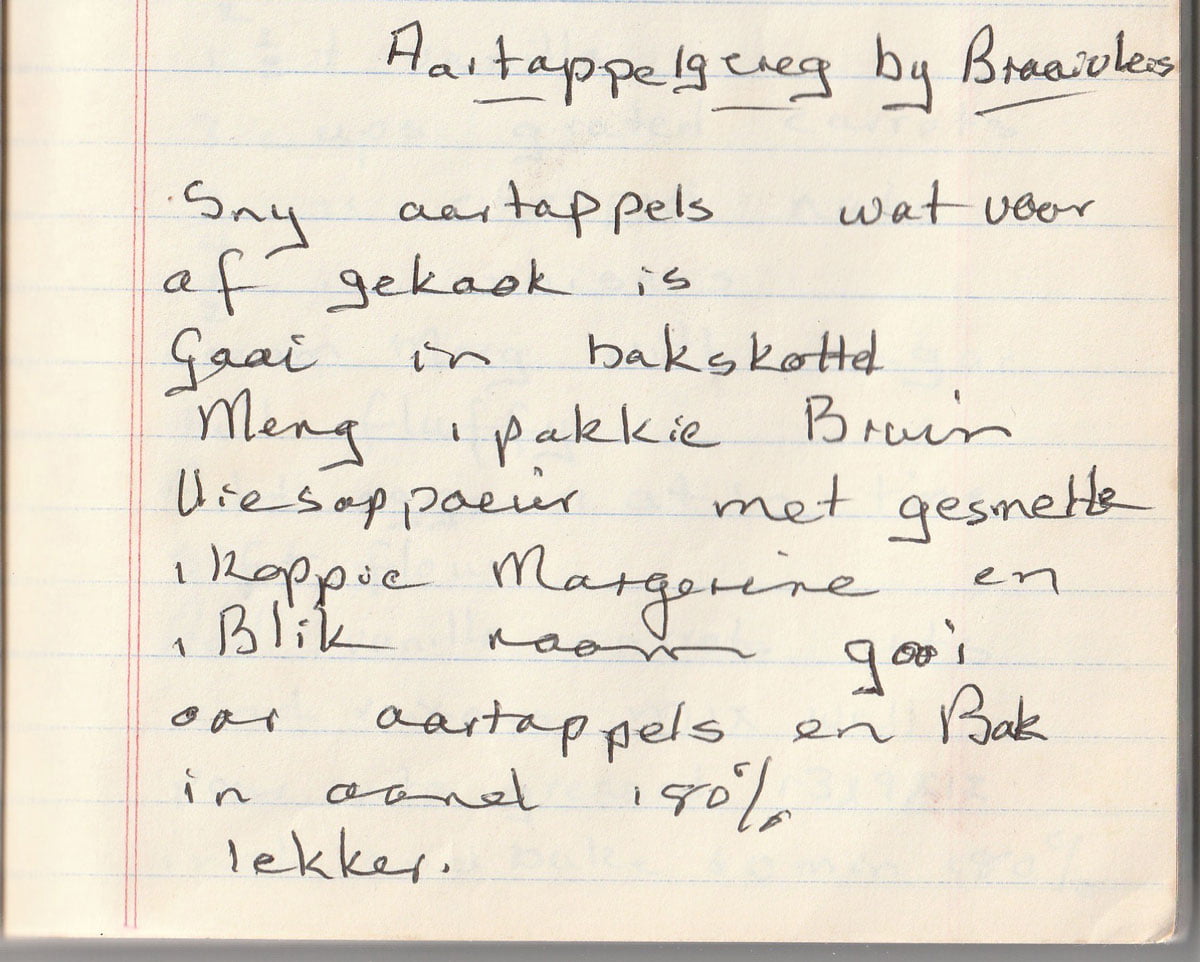 Aartappelgereg by Braaivleis
Sny aartappels wat voor
af gekook is
Gooi in bakskottel
Meng 1 pakkie Bruin
Uiesoppoeier met gesmelte
1 koppie Margerine en
1 Blik room gooi
oor aartappels en Bak
in oond 180%
lekker.